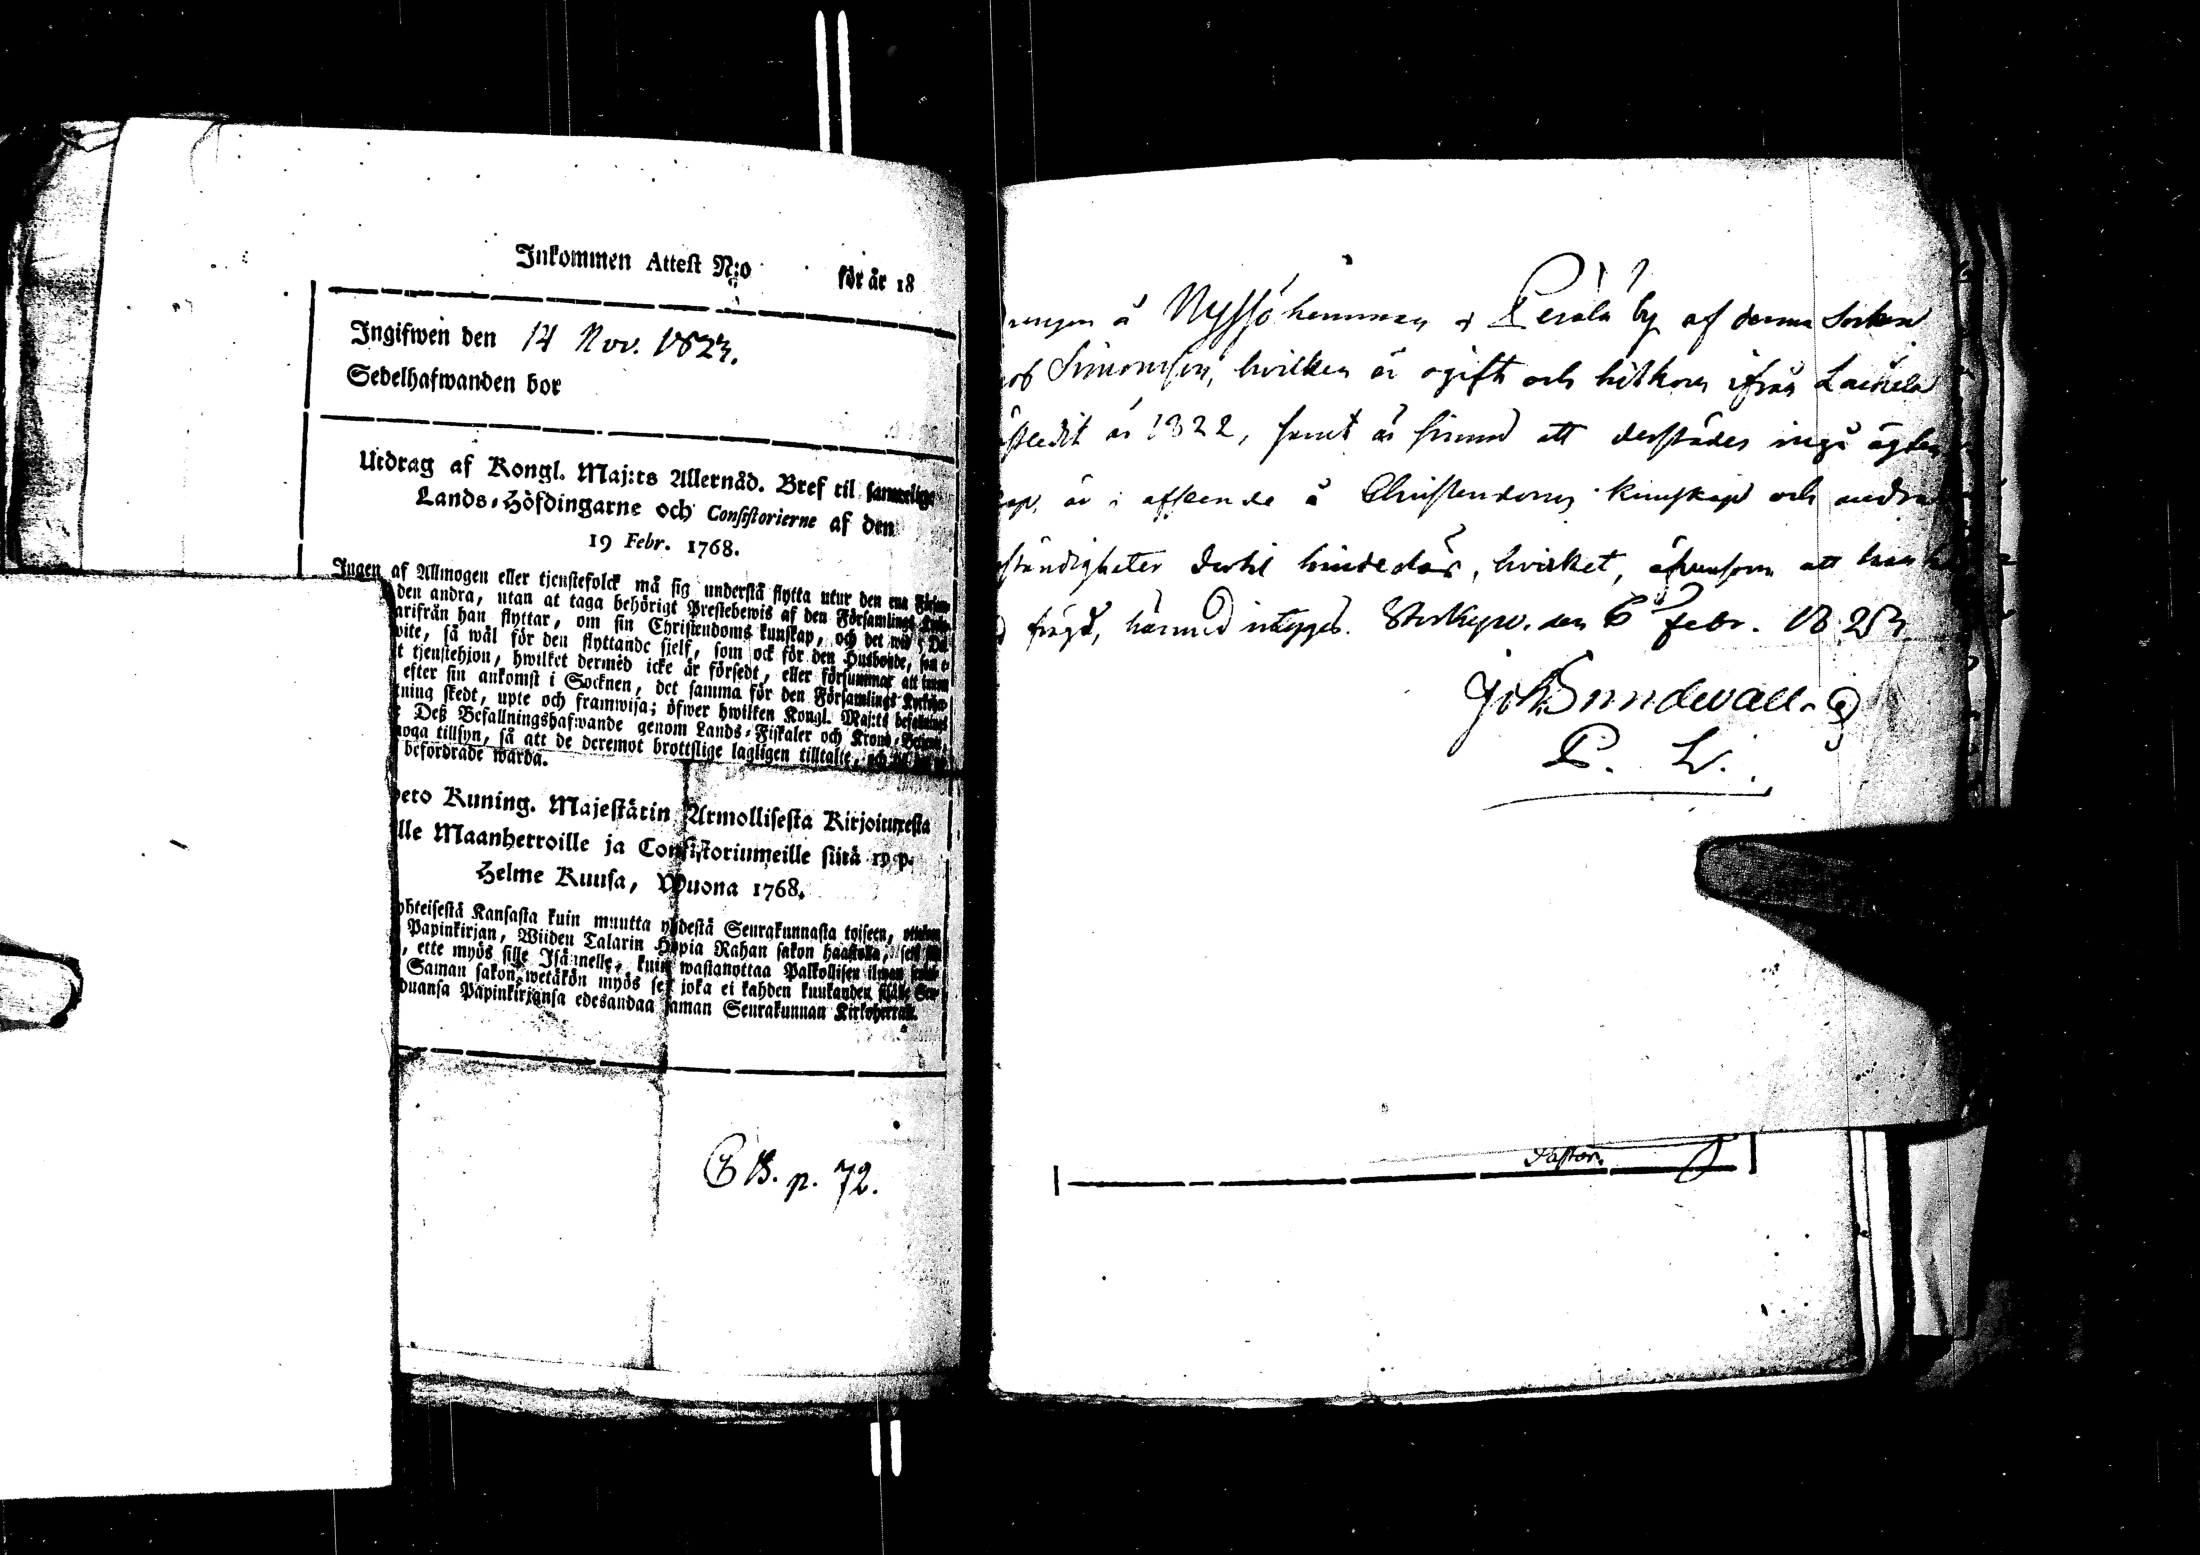 Inkommen Attest N:o för år 18
Ingifwen den 14 Nov. 1823.
Sedelhafwanden bor
Utdrag af Kongl. Maj:ts Allernåd. Bref til samtelige
Lands-Höfdingarne och Consistorierne af den
19 Febr. 1768.
Ingen af Allmogen eller tjenstefolck må sig understå flytta utur den ena
den andra, utan at taga behörigt Prestebewis af den Församlings
arifrån han flyttar, om sin Christendoms kunskap, och det wid 5
wite, så wäl för den flyttande sjelf, som ock för den Husbonde, som
t tjenstehjon, hwilket dermed icke är försedt, eller försummar att
efter sin ankomst i Socknen, det samma för den Församlings
tning skedt, upte och framwisa; öfwer hwilken Kongl. Maj:ts
Deß Befallningshafwande genom Lands-Fiskaler och Krono-
noga tillsyn, så att de deremot brottslige lagligen tilltalte,
befordrade warda.
eto Kuning. Majestätin Armollisesta Kirjoituxesta
lle Maanherroille ja Consistoriumeille siitä 19 p.
Helme Kuusa, Wuona 1768.
yhteisestä Kansasta kuin muutta yhdestä Seurakunnasta toiseen,
Papinkirjan, Wiiden Talarin Hopia Rahan sakon haastolla,
, ette myös sille Isännelle, kuin wastanottaa Palkollisen ilman
Saman sakon wetäkön myös se, joka ei kahden kuukauden sisälle
duansa Papinkirjansa edesandaa saman Seurakunnan Kirkoherralle.
C B. p. 72.
å Nyssjö hemman Perälä by af denna Socken
ob Simonsson, hvilken är ogift och hitkom ifrån Laihela
år 1822, samt är sinnad att derstädes ingå
är i afseende å Christendoms kunskap och
ständigheter dertil hinderlös, hvilket, äfvensom att han
frägd, härmed intygas. Storkyro. den 6 febr. 1823
Joh. Sundwall.
P. L.
Pastor.